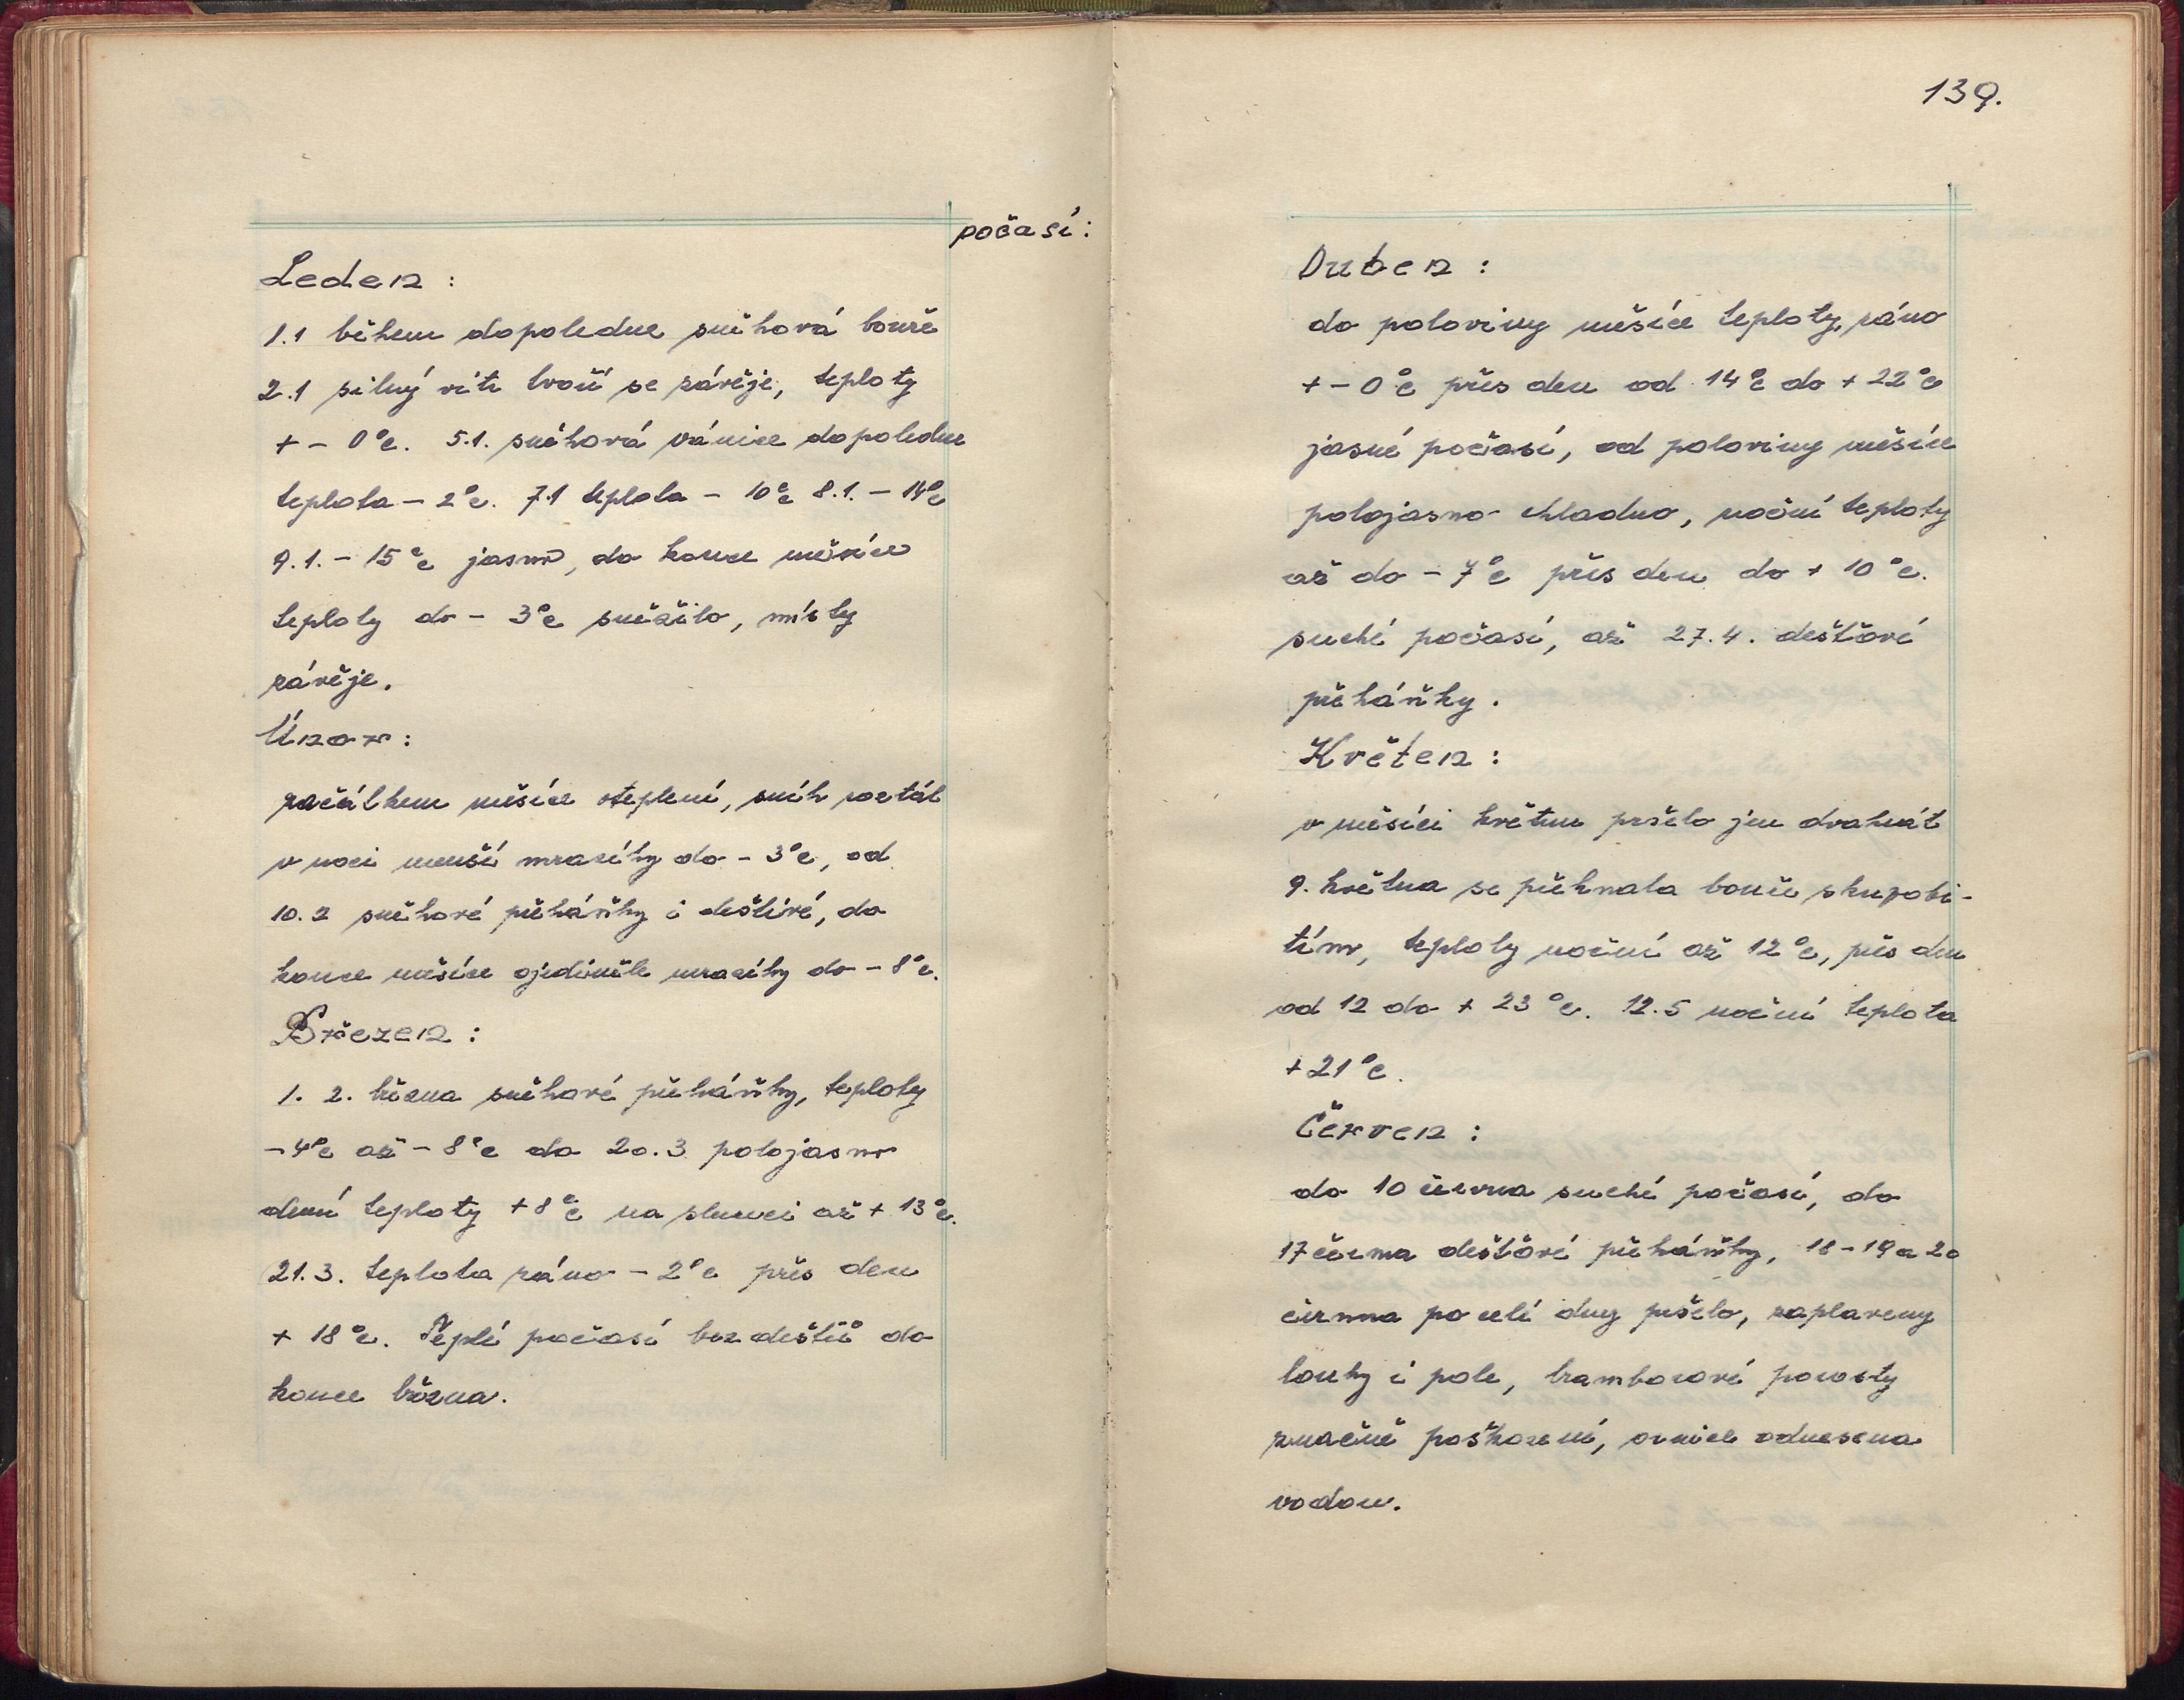 počasí:
Leden:
1.1 během dopoledne sněhová bouře
2.1 silný vítr tvoří se závěje, teploty
+ - 0°c. 5.1. sněhová vánice dopoledne
teplota - 2°c. 7.1 teplota - 10°c 8.1. - 14°c
9.1. - 15°c jasno, do konce měsíce
teploty do - 3°c sněžilo, místy
závěje.
Únor:
začátkem měsíce oteplení, sníh roztál
v noci menší mrazíky do - 3°c, od
10.2 sněhové přeháňky i deštivé, do
konce měsíce ojediněle mrazíky do - 8°c.
Březen:
1. 2. března sněhové přeháňky, teploty
- 4°c až - 8°c do 20.3 polojasno
dení teploty + 8°c na slunci až + 13°c.
21.3. teplota ráno - 2°c přes den
+ 18°c. Teplé počasí bez deštů do
konce března.
139.
Duben:
do poloviny měsíce teploty ráno
+ - 0°c přes den od 14°c do + 22°c
jasné počasí, od poloviny měsíce
polojasno chladno, noční teploty
až do - 7°c přes den do + 10°c.
suché počasí, až 27.4. dešťové
přeháňky.
Květen:
v měsíci květnu pršelo jen dvakrát
9. května se přehnala bouře s krupobi-
tím, teploty noční až 12°c, přes den
od 12 do + 23°c. 12.5 noční teplota
+ 21°c.
Červen:
do 10 června suché počasí, do
17 června dešťové přeháňky, 18 - 19 a 20
června po celé dny pršelo, zaplaveny
louky i pole, bramborové porosty
značně poškození, ornice odnesena
vodou.